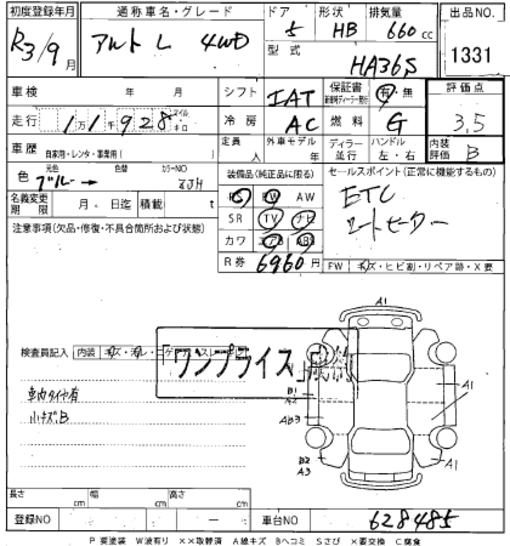 初度登録年月 通称車名・グレード ドア 形状 排気量 出品NO.
R3/9月 アルト L 4WD 5 HB 660cc 1331
型式 HA36S
車検 年 月 シフト IAT 保証書 有・無 評価点
走行 1万1千928 マイル キロ 冷房 AC 燃料 G 3.5
車歴 自家用・レンタ・事業用( ) 定員 人 外車モデル 年 ディーラー 並行 ハンドル 左・右 内装評価 B
色 元色 ブルー → 色替 カラーNO ZJH 装備品(純正品に限る) セールスポイント(正常に機能するもの)
PS PW AW ETC
名義変更期限 月 日迄 積載 t SR TV ナビ シートヒーター
注意事項(欠品・修復・不具合箇所および状態) カワ エアB ABS
R券 6960円 FW キズ・ヒビ割・リペア跡・X要
A1
検査員記入 内装
「ワンプライス」成約
車内タイヤ有
小キズB
B1
A2
A1
AB3
A1
B2
A3
A1
長さ cm 幅 cm 高さ cm
登録NO ー 車台NO 628485
P 要塗装 W波有り ××取替済 A線キズ Bヘコミ Sさび ×要交換 C腐食